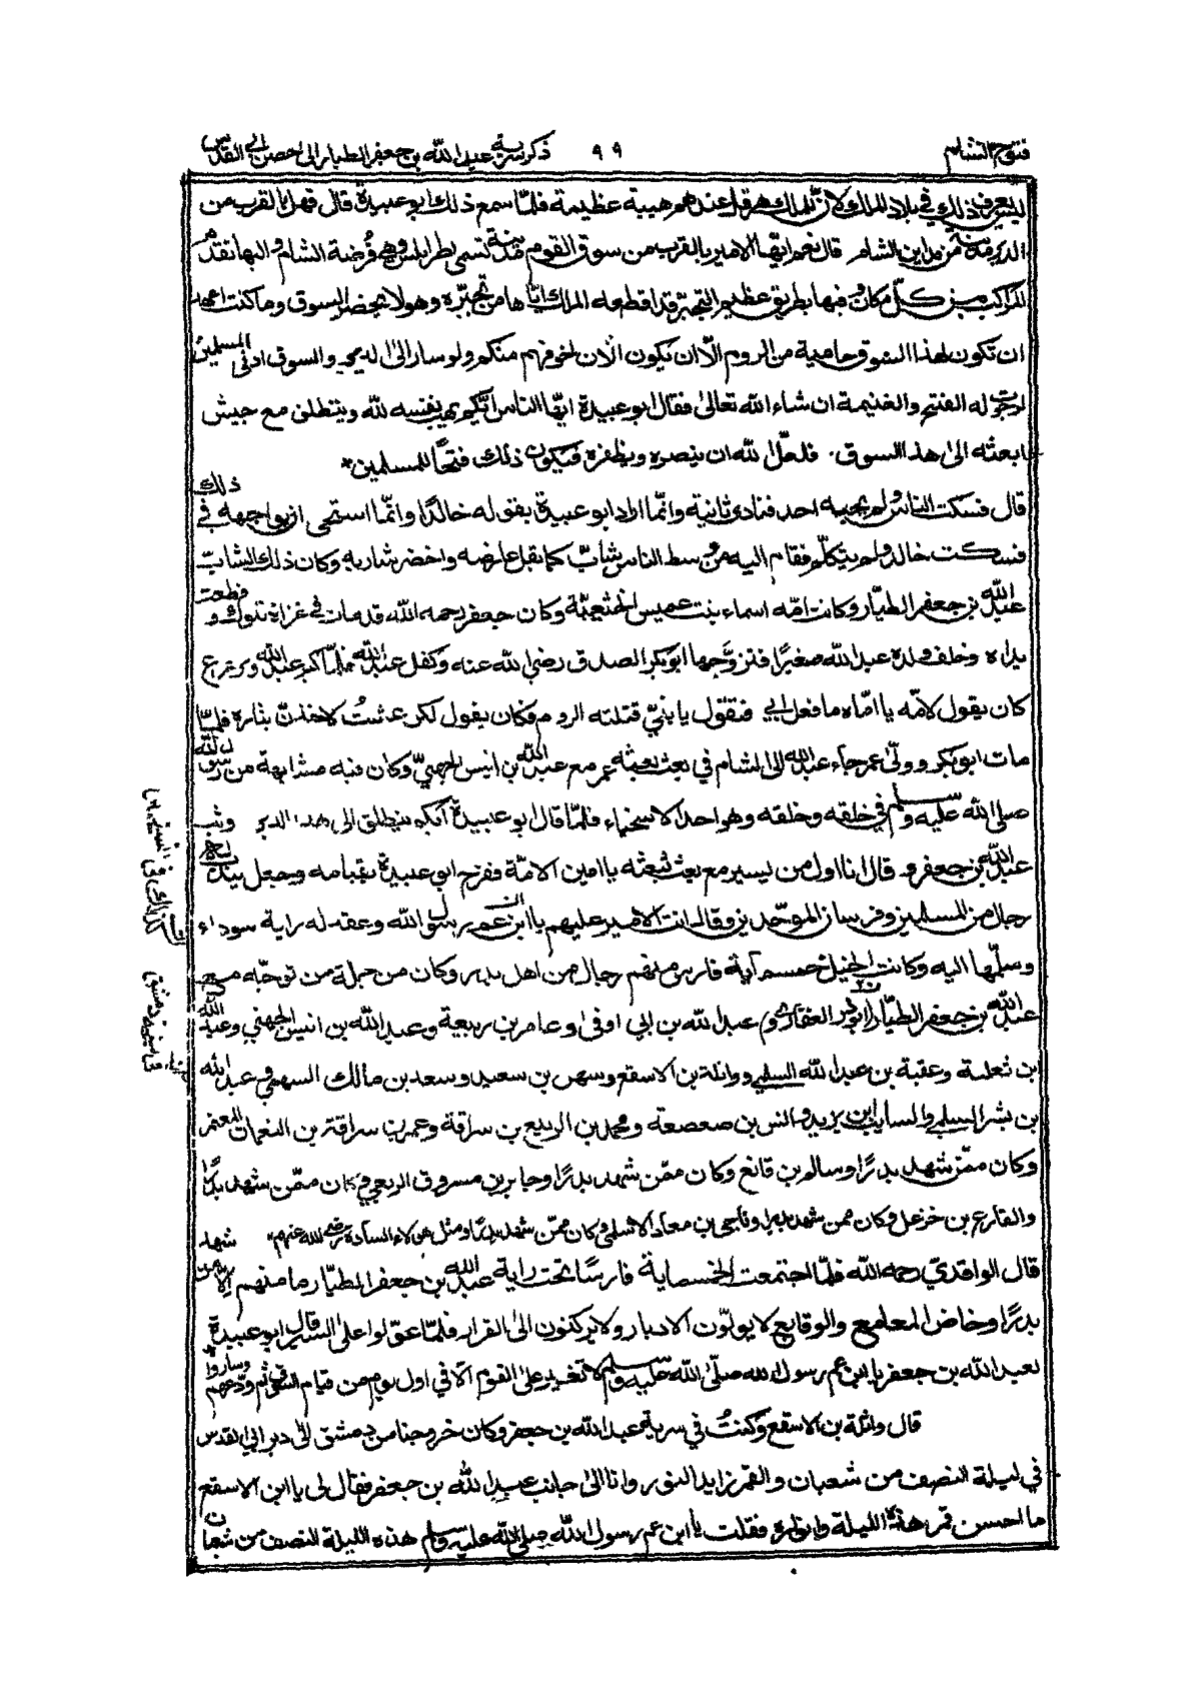 فتوح الشام ٩٩ ذكر سرية عبد الله بن جعفر الطيار الى حصن ابى القدس
ليس يعرف ذلك في بلاد الملك لانّ للملك هرقل عندهم هيبة عظيمة فلمّا سمع ذلك ابو عبيدة قال فهل بالقرب من
الدير مدينة من مداين الشام قال نعم ايّها الامير بالقرب من سوق القوم مدينة تسمى طرابلس وهي فُرضة الشام واليها تقدم
المراكب من كلّ مكان وفيها بطريق عظيم التجبّر قد اقطعه الملك ايّاها من تجبّره وهو لا يحضر السوق وما كنت اعهد
ان تكون لهذا السوق حامية من الروم الّا ان تكون الآن لخوفهم منكم ولو سار الى الدير والسوق ادنى المسلمين
لرجوت له الفتح والغنيمة ان شاء الله تعالى فقال ابو عبيدة ايّها الناس ايّكم يهب نفسه لله وينطلق مع جيش
ابعثه الى هذا السوق فلعلّ الله ان ينصره ويظفره فيكون ذلك فتحًا للمسلمين *
قال فسكت الناس ولم يجبه احد فنادى ثانية وانّما اراد ابو عبيدة بقوله خالدًا وانّما استحى ان يواجهه في ذلك
فسكت خالد ولم يتكلّم فقام اليه من وسط الناس شابّ كما بقل عارضه واخضر شاربه وكان ذلك الشابّ
عبد الله بن جعفر الطيّار وكانت امّه اسماء بنت عميس الخثعميّة وكان جعفر رحمه الله قد مات في غزاة تبوك وقطعت
يداه وخلف ولده عبد الله صغيرًا فتزوّجها ابو بكر الصديق رضي الله عنه وكفل عبد الله فلمّا كبر عبد الله وترعرع
كان يقول لامّه يا امّاه ما فعل ابي فتقول يا بنيّ قتلته الروم فكان يقول لئن عشتُ لاخذنّ بثاره فلمّا
مات ابو بكر وولّى عمر جاء عبد الله الى الشام في بعث بعثه عمر مع عبد الله بن انيس الجهنيّ وكان فيه مشابهة من رسول الله
صلى الله عليه وسلم في خلقه وخلقه وهو احد الاسخياء فلمّا قال ابو عبيدة ايّكم ينطلق الى هذا الدير وثب
عبد الله بن جعفر وقال انا اول من يسير مع بعث تبعثه يا امين الامّة ففرح ابو عبيدة بقيامه وجعل يندب له
رجال من المسلمين وفرسان الموحّدين وقال انت الامير عليهم يا ابن عم رسول الله وعقد له راية سوداء
وسلّمها اليه وكانت الخيل خمسماية فارس منهم رجال من اهل بدر وكان من جملة من توجّه مع
عبد الله بن جعفر الطيّار ابو ذر الغفاري وعبد الله بن ابي اوفى وعامر بن ربيعة وعبد الله بن انيس الجهني وعبد الله
ابن ثعلبة وعقبة بن عبد الله السلمي وواثلة بن الاسقع وسهل بن سعيد وسعد بن مالك السهمي وعبد الله
بن بشر السلمي والسايب ابن يزيد وانس بن صعصعة ومحمد بن الربيع بن سراقة وعمرو بن سراقة بن النعمان المعتمر
وكان ممّن شهد بدرًا وسالم بن قانع وكان ممّن شهد بدرًا وجابر بن مسروق الربعي وكان ممّن شهد بدرًا
والقارع بن خزعل وكان ممن شهد بدرا وناجى بن معاد الاسلمي وكان ممّن شهد بدرًا ومثل هولاء السادة رضي الله عنهم
قال الواقديّ رحمه الله فلمّا اجتمعت الخمسماية فارسًا تحت راية عبد الله بن جعفر الطيّار ما منهم الّا من شهد
بدرًا وخاض المعامع والوقايع لا يولّون الادبار ولا يركنون الى الفرار فلمّا عوّلوا على السير قال ابو عبيدة
لعبد الله بن جعفر يا ابن عم رسول الله صلّى الله عليه وسلم لا تغير على القوم الّا في اول يوم من قيام السوق ثم ودّعهم وساروا
قال واثلة بن الاسقع وكنتُ في سرية عبد الله بن جعفر وكان خروجنا من دمشق الى دير ابي القدس
في ليلة النصف من شعبان والقمر زايد النور وانا الى جانب عبد الله بن جعفر فقال لى يا ابن الاسقع
ما احسن قمر هذه الليلة وانوره فقلت يا ابن عم رسول الله صلى الله عليه وسلم هذه الليلة النصف من شعبان